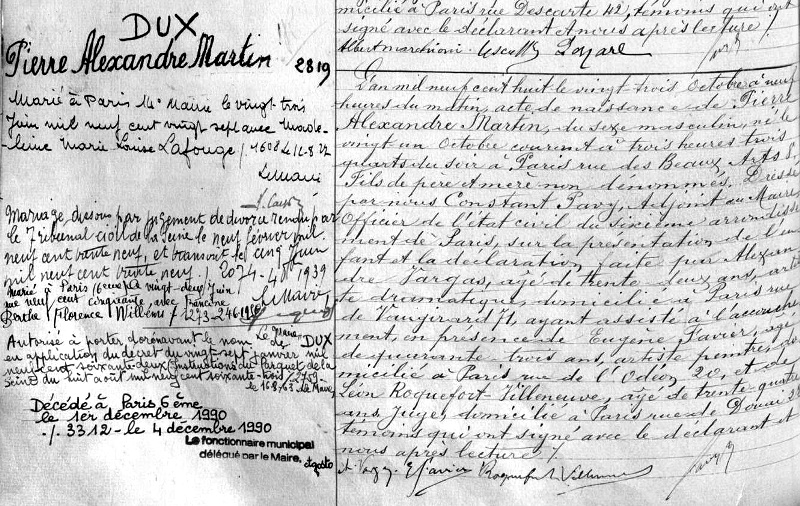 DUX
Pierre Alexandre Martin 2819
Marié à Paris 14e Mairie le vingt trois
Juin mil neuf cent vingt sept avec Made-
-leine Marie Louise Lafouge / 1608 le
Le Maire
Mariage, dissous par jugement de divorce rendu par
le Tribunal civil de la Seine le neuf février mil
neuf cent trente neuf, et transcrit le cinq Juin
mil neuf cent trente neuf / 2074-4 1939
Le Maire
Marié à Paris (6eme) le vingt-deux Juin
neuf cent cinquante avec Francine
Berthe Florence Willems / 1273-24.6.1950
Le Maire
Autorisé à porter dorénavant le nom de DUX
en application du décret du vingt-sept janvier mil
neuf cent soixante-deux (Instructions du Parquet de la
Seine du huit août mil neuf cent soixante-trois) 2759
16.8.63 Le Maire,
Décédé à Paris 6ème
le 1er décembre 1990
-/. 3312 - le 4 décembre 1990
Le fonctionnaire municipal
délégué par le Maire,
micilié à Paris rue Descarte 42, témoins qui ont
signé avec le déclarant et nous après lecture /.
Albert Marchioni.
L'an mil neuf cent huit le vingt trois Octobre à neuf
heures du matin, acte de naissance de Pierre
Alexandre Martin, du sexe masculin, né le
vingt un Octobre courant à trois heures trois
quarts du soir à Paris rue des Beaux Arts 8,
Fils de père et mère non dénommés. Dressé
par nous Constant Pavy, Adjoint au Maire,
Officier de l'état civil du sixième arrondisse
ment de Paris, sur la présentation de l'en
fant et la déclaration faite par Alexan
dre Vargas, âgé de trente deux ans, artis
te dramatique, domicilié à Paris rue
de Vaugirard 71, ayant assisté à l'accouche
ment, en présence de Eugène Favier, âgé
de quarante trois ans, artiste peintre, do
micilié à Paris rue de l'Odéon 20, et de
Léon Roquefort-Villeneuve, âgé de trente quatre
ans, juge, domicilié à Paris rue de Douai 22
témoins qui ont signé avec le déclarant et
nous après lecture /.